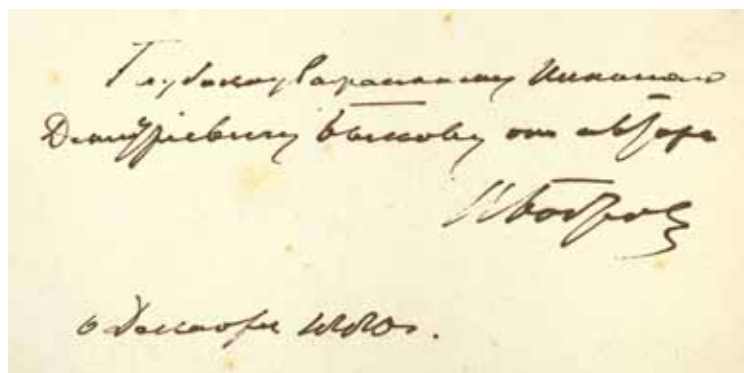 Глубокоуважаемому Николаю
Дмитріевичу Быкову от автора
Бобров
6 Декабря 1880г.